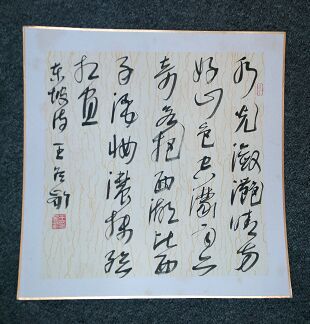 水光瀲灩晴方
好山色空濛雨亦
奇若把西湖比西
子淡妝濃抹總
相宜
东坡诗 王